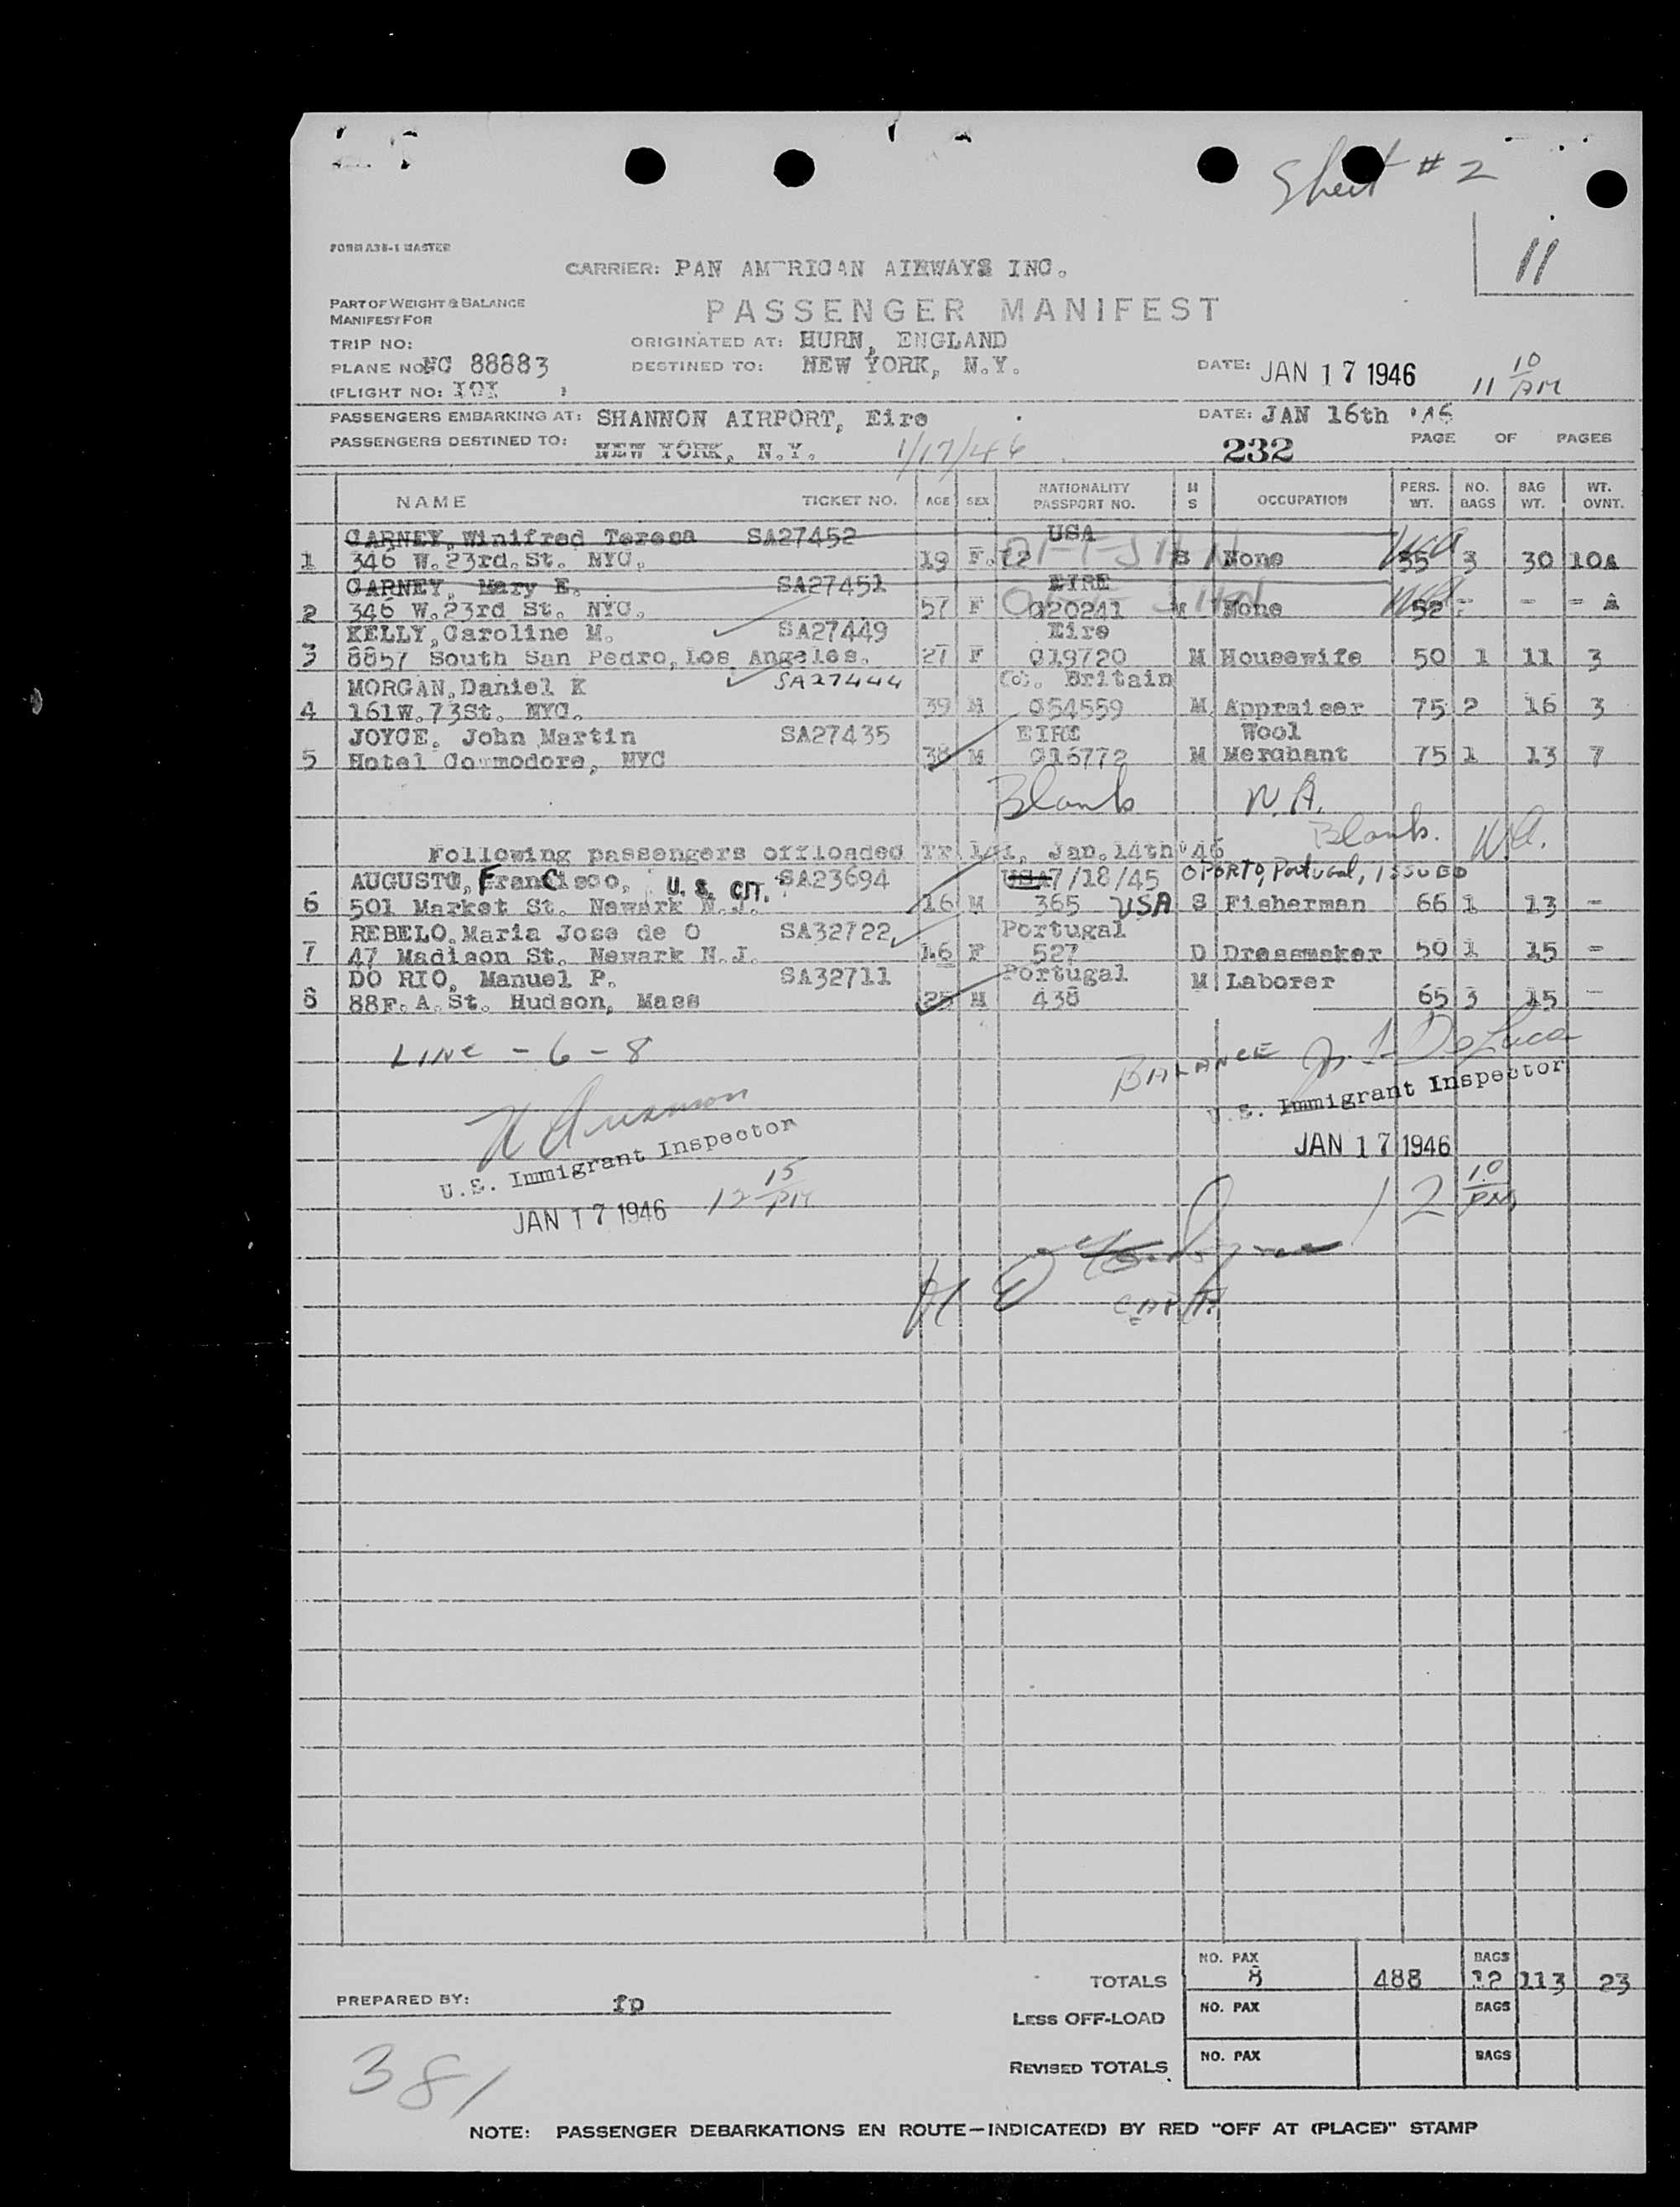 Sheet # 2
11
FORM A38-1 MASTER
CARRIER: PAN AM RICAN AIRWAYS INC.
PART OF WEIGHT & BALANCE
MANIFEST FOR
PASSENGER MANIFEST
TRIP NO:
ORIGINATED AT: HURN, ENGLAND
PLANE NO: NC 88883
DESTINED TO: NEW YORK, N.Y.
DATE: JAN 17 1946
11 10 PM
(FLIGHT NO: 101 )
PASSENGERS EMBARKING AT: SHANNON AIRPORT, Eire
DATE: JAN 16th '46
PASSENGERS DESTINED TO: NEW YORK, N.Y. 1/17/46
232
PAGE OF PAGES
NAME TICKET NO. AGE SEX NATIONALITY PASSPORT NO. M S OCCUPATION PERS. WT. NO. BAGS BAG WT. WT. OVNT.
CARNEY, Winifred Teresa SA27452 USA
1 346 W.23rd.St. NYC. 19 F. 12 S None 55 3 30 10A
CARNEY, Mary E. SA27451 EIRE
2 346 W.23rd St. NYC. 57 F 020241 M None 52 - - - A
KELLY, Caroline M. SA27449 Eire
3 8857 South San Pedro, Los Angeles. 27 F 019720 M Housewife 50 1 11 3
MORGAN, Daniel K SA27444 Britain
4 161W.73St. NYC. 39 M 054559 M Appraiser 75 2 16 3
JOYCE. John Martin SA27435 EIRE Wool
5 Hotel Commodore, NYC 38 M 016772 M Merchant 75 1 13 7
Blank N.A.
Blank. N.A.
Following passengers offloaded Tr 141, Jan.14th'46
AUGUSTO, Francisco, U. S. CIT. SA23694 USA 7/18/45 OPORTO, Portugal, ISSUED
6 501 Market St. Newark N.J. 16 M 365 USA S Fisherman 66 1 13 -
REBELO.Maria Jose de O SA32722 Portugal
7 47 Madison St. Newark N.J. 16 F 527 D Dressmaker 50 1 15 -
DO RIO, Manuel P. SA32711 Portugal
8 88F.A.St. Hudson, Mass 25 M 438 M Laborer 65 3 15 -
LINE - 6 - 8
BALANCE DeLuca
U.S. Immigrant Inspector
JAN 17 1946
12 10 PM
U.S. Immigrant Inspector
JAN 17 1946 12 15 PM
TOTALS NO. PAX 8 488 BAGS 12 113 23
PREPARED BY: fp
LESS OFF-LOAD NO. PAX BAGS
REVISED TOTALS NO. PAX BAGS
381
NOTE: PASSENGER DEBARKATIONS EN ROUTE—INDICATE(D) BY RED "OFF AT (PLACE)" STAMP